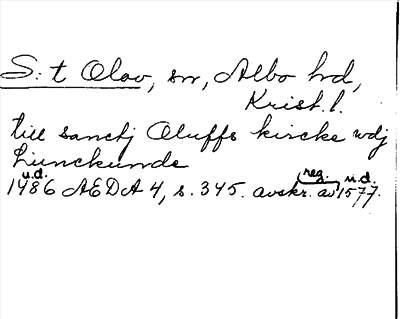 S:t Olov, sn, Albo hd,
Krist. l.
till sanctj Oluffs kircke wdj
Liunckunde
u.d. reg. u.d.
1486 AEDA 4, s. 345. avskr. av 1577.